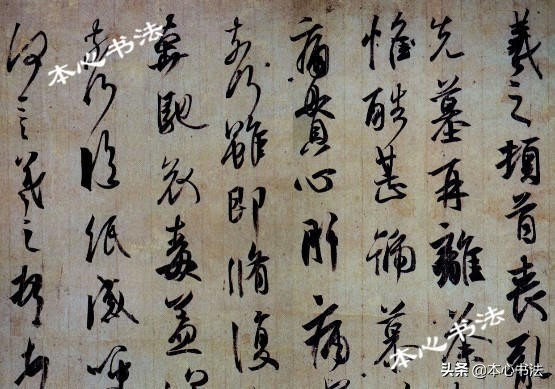 羲之頓首喪亂
先墓再離荼
惟酷甚號慕
痛貫心肝痛
奈何雖即脩復
奔馳哀毒益
奈何臨紙感哽
何言羲之頓首
本心书法
本心书法
头条 @本心书法